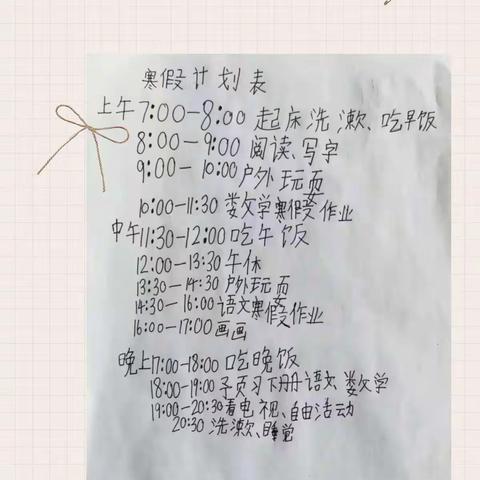 寒假计划表
上午7:00-8:00起床洗漱、吃早饭
8:00-9:00阅读、写字
9:00-10:00户外玩而
10:00-11:30数学寒假作业
中午11:30-12:00吃午饭
12:00-13:30午休
13:30-14:30户外玩而
14:30-16:00语文寒假作业
16:00-17:00画画
晚上17:00-18:00吃晚饭
18:00-19:00予页习下册语文、数学
19:00-20:30看电视、自由活动
20:30洗漱、睡觉